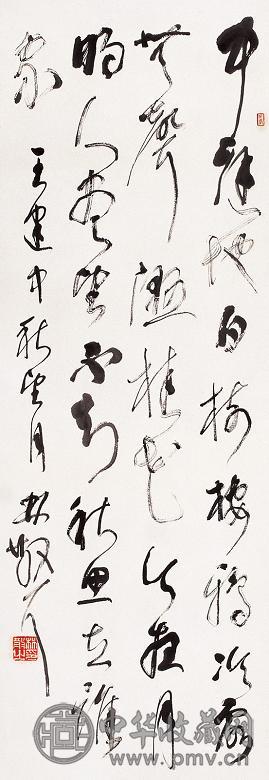 中庭地白樹棲鴉冷露
無聲濕桂花今夜月
明人盡望不知秋思在誰
家
王建中秋望月 林散耳
中华收藏网
www.pmv.cn